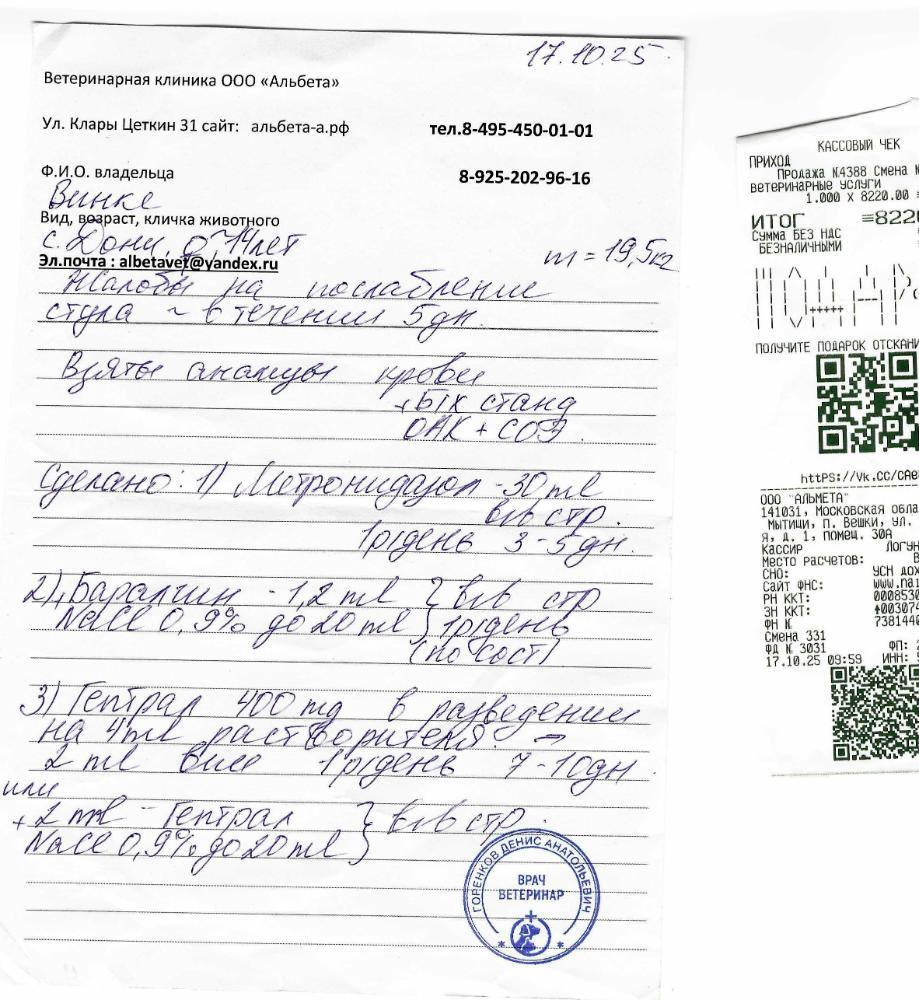 17.10.25
Ветеринарная клиника ООО «Альбета»
Ул. Клары Цеткин 31 сайт: альбета-а.рф
тел.8-495-450-01-01
Ф.И.О. владельца
8-925-202-96-16
Винке
Вид, возраст, кличка животного
с. Дони, ~14лет
m = 19,5кг
Эл.почта : albetavet@yandex.ru
Жалобы на послабление
стула ~ в течении 5дн.
Взяты анализы крови
+ Б/х станд
ОАК + СОЭ.
Сделано: 1) Метронидазол - 30 ml
в/в стр.
1р/день 3-5дн.
2) Баралгин - 1,2 ml } в/в стр
NaCl 0,9% до 20 ml } 1р/день
(по сост)
3) Гептрал 400 mg в разведении
на 4ml растворителя. →
2 ml в/м 1р/день 7-10дн.
или
+ 2 ml - Гептрал } в/в стр.
NaCl 0,9% до 20 ml }
ГОРЕНКОВ ДЕНИС АНАТОЛЬЕВИЧ
ВРАЧ
ВЕТЕРИНАР
КАССОВЫЙ ЧЕК
ПРИХОД
Продажа N4388 Смена N
ветеринарные услуги
1.000 X 8220.00 =
ИТОГ ≡8220
СУММА БЕЗ НДС
БЕЗНАЛИЧНЫМИ
ПОЛУЧИТЕ ПОДАРОК ОТСКАНИ
httPS://Vk.CC/CA
ООО "АЛЬМЕТА"
141031, Московская обла
Мытищи, п. Вешки, ул.
я, д. 1, помещ. 30А
Кассир ЛОГУН
Место расчетов: В
СНО: УСН дох
Сайт ФНС: www.na
РН ККТ: 0000853
ЗН ККТ: +003074
ФН N 7381440
Смена 331
ФД N 3031 ФП: 2
17.10.25 09:59 ИНН: